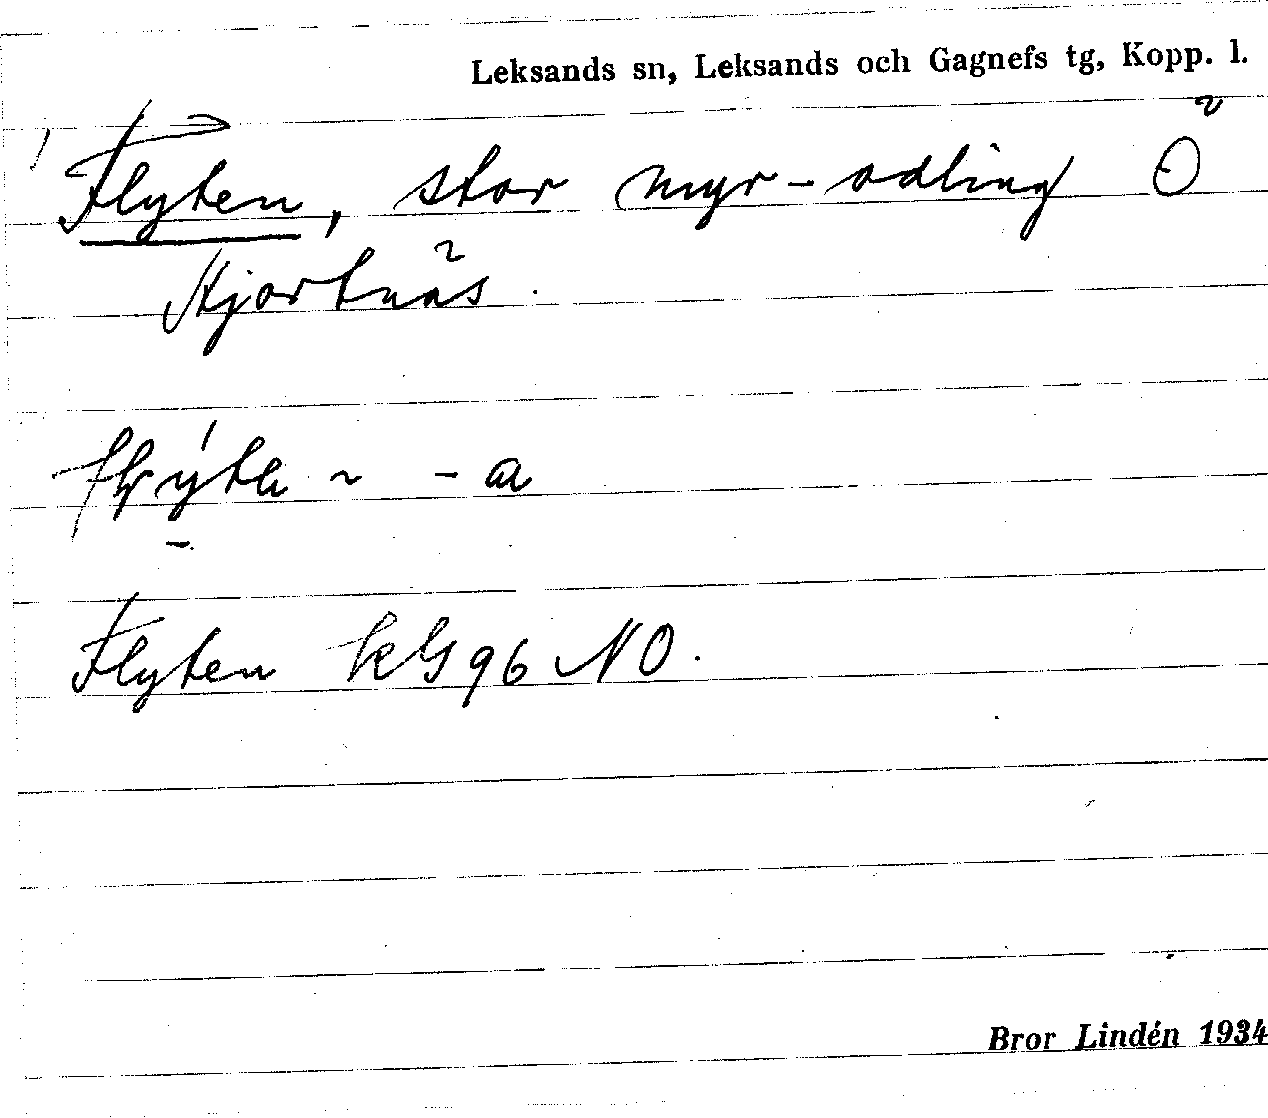 Leksands sn, Leksands och Gagnefs tg, Kopp. l.
Flyten, stor myr-odling Ö
Hjortnäs.
~ -a
Flyten kG96 NO.
Bror Lindén 1934